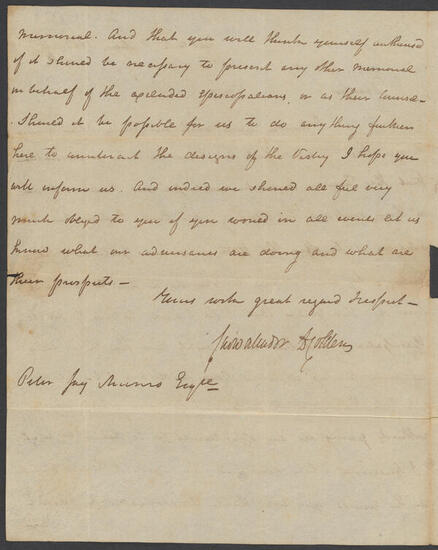 memorial. And that you will think yourself authorised
of it should be necessary to present any other memorial
in behalf of the excluded Episcopalians, or as their Counsel
. Should it be possible for us to do any thing further
here to counteract the designs of the Vestry I hope you
will inform us. And indeed we should all feel very
much obliged to you if you would in all events let us
know what our adversaries are doing and what are
their prospects —
Yours with great regard & respect —
Cadwallader D Colden
Peter Jay Munro Esqre